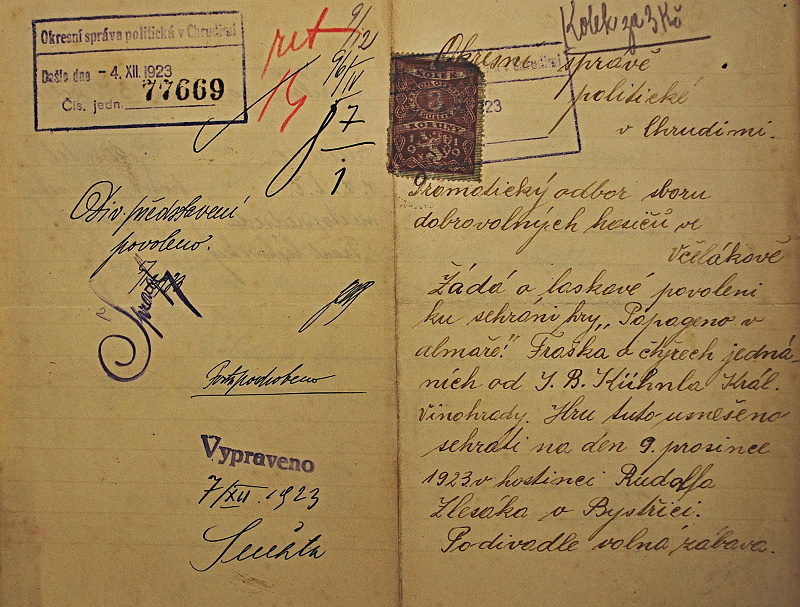 Okresní správa politická v Chrudimi
Došlo dne - 4. XII. 1923
Čís. jedn. 77669
9/12
7
1
Div. představení
povoleno.
Vypraveno
7/XII. 1923
Kolek za 3 Kč
KOLEK
3
KORUNY
1919
Okresní správě
politické
v Chrudimi.
Dromatický odbor sboru
dobrovolných hasičů ve
Včelákově
Žádá o laskavé povolení
ku sehrání hry „Papageno v
almaře!" Fraška o čtyřech jedná-
ních od J. B. Kühnla Král.
Vinohrady. Hru tuto usnešeno
sehráti na den 9. prosince
1923 v hostinci Rudolfa
Zlesáka v Bystřici.
Po divadle volná zábava.